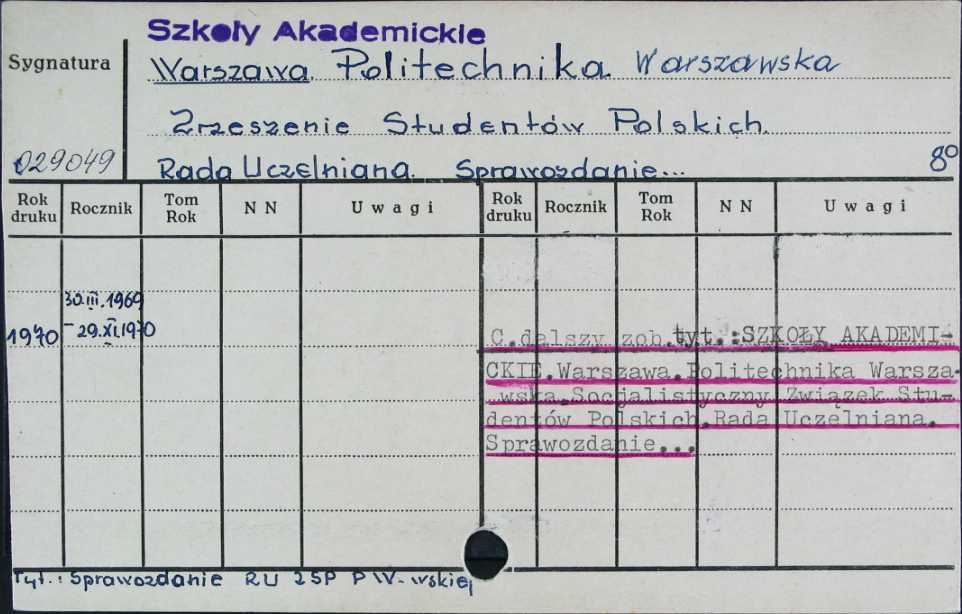 Szkoły Akademickie
Sygnatura
Warszawa. Politechnika Warszawska
Zrzeszenie Studentów Polskich.
029049
Rada Uczelniana. Sprawozdanie...
8°
Rok druku Rocznik Tom Rok N N Uwagi Rok druku Rocznik Tom Rok N N Uwagi
30.III.1969
1970 - 29.XI.1970
C.dalszy zob.tyt.:SZKOŁY AKADEMI-
CKIE.Warszawa.Politechnika Warsza-
wska.Socjalistyczny Związek Stu-
dentów Polskich.Rada Uczelniana.
Sprawozdanie...
Tyt.: Sprawozdanie RU ZSP PW-wskiej